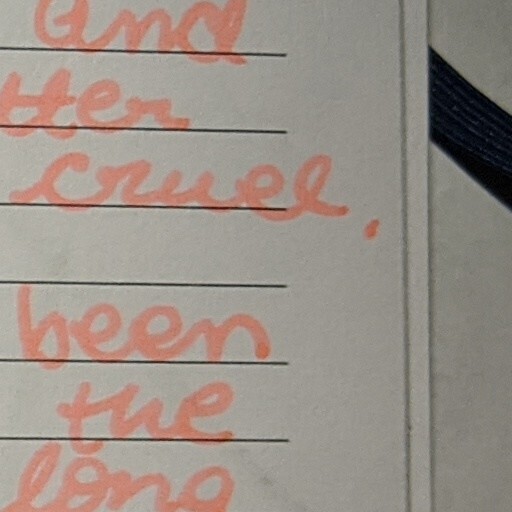 and
tter
cruel.
been
the
long